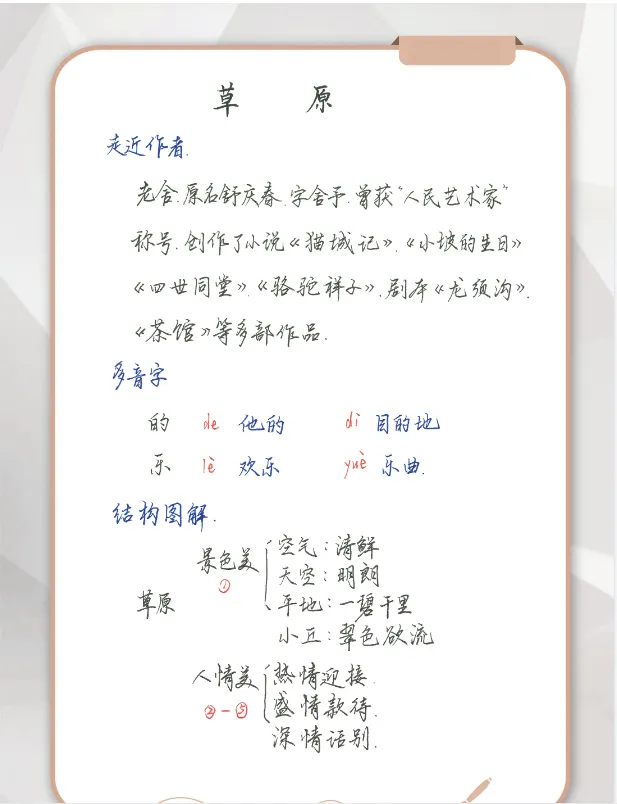 草 原
走近作者.
老舍.原名舒庆春.字舍予.曾获"人民艺术家"
称号.创作了小说《猫城记》.《小坡的生日》
《四世同堂》.《骆驼祥子》.剧本《龙须沟》.
《茶馆》等多部作品.
多音字
的 de 他的 dì 目的地
乐 lè 欢乐 yuè 乐曲.
结构图解.
草原
景色美 ①
空气：清鲜
天空：明朗
平地：一碧千里
小丘：翠色欲流
人情美 ②-⑤
热情迎接.
盛情款待.
深情话别.